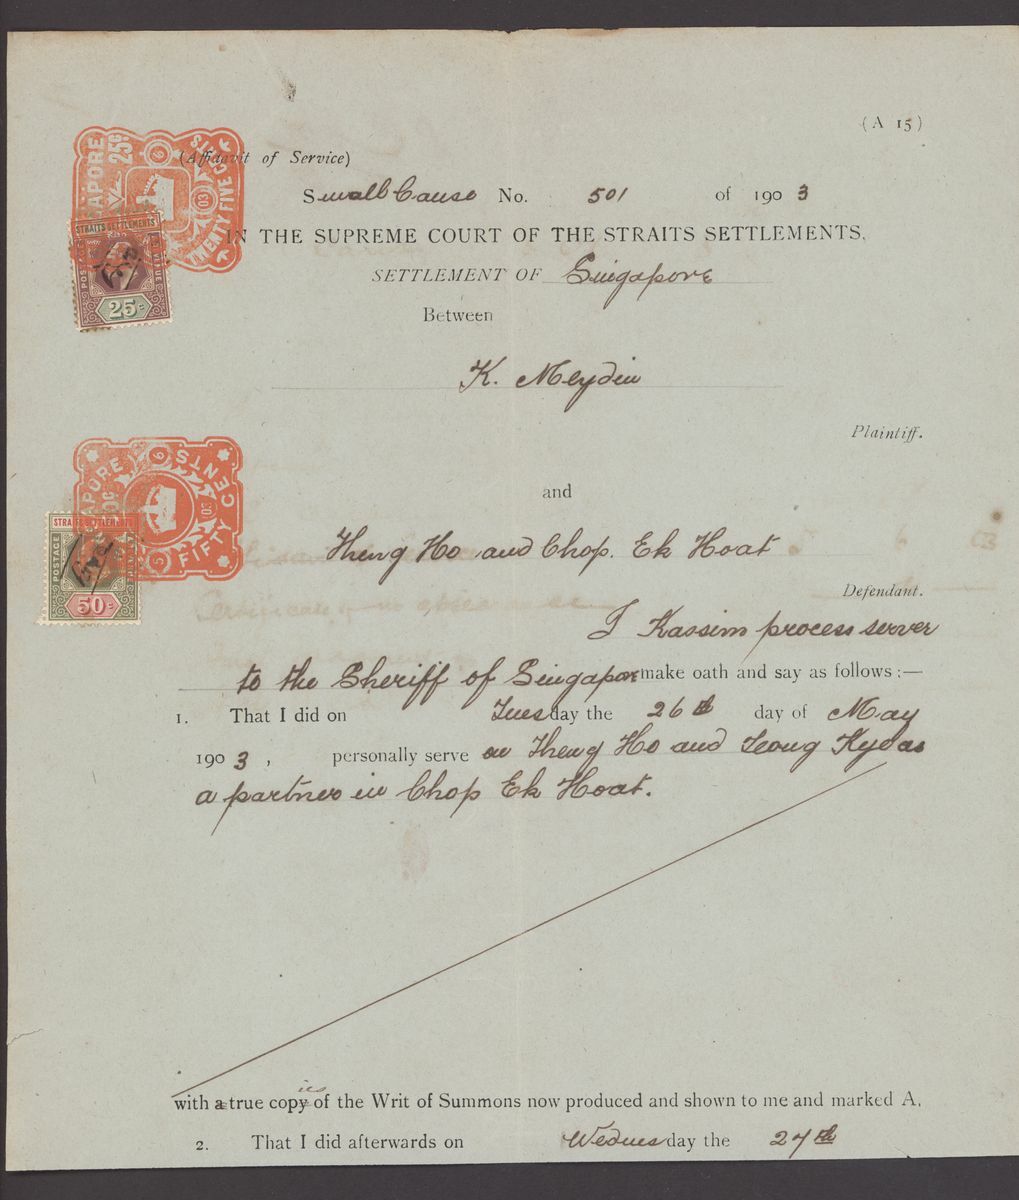 (A 15)
(Affidavit of Service)
Small Cause No. 501 of 1903
IN THE SUPREME COURT OF THE STRAITS SETTLEMENTS,
SETTLEMENT OF Singapore
Between
K. Meydin
Plaintiff.
and
Theng Ho and Chop Ek Hoat
Defendant.
I Kassim process server
to the Sheriff of Singapore make oath and say as follows :—
1. That I did on Tuesday the 26th day of May
1903, personally serve on Theng Ho and Leong Kye as
a partner in Chop Ek Hoat.
with a true copies of the Writ of Summons now produced and shown to me and marked A,
2. That I did afterwards on Wednesday the 27th
SINGAPORE 25c
TWENTY FIVE CENTS
STRAITS SETTLEMENTS
POSTAGE REVENUE
25c
SINGAPORE 50c
FIFTY CENTS
STRAITS SETTLEMENTS
POSTAGE REVENUE
50c